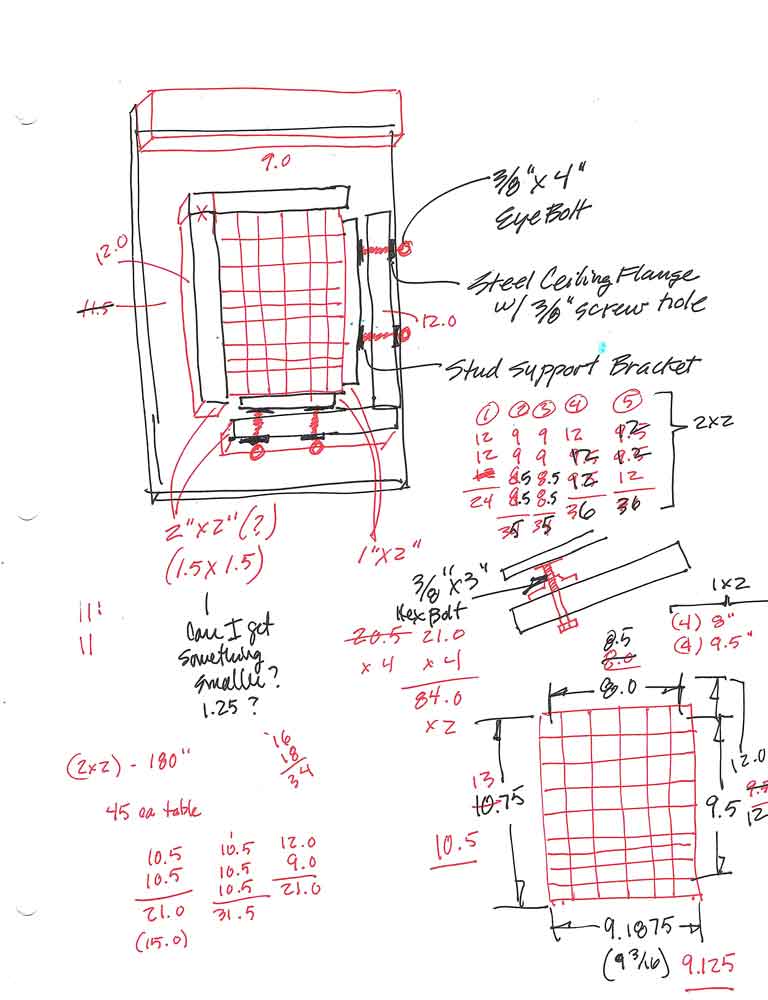 9.0
3/8" x 4"
Eye Bolt
12.0
11.5
Steel Ceiling Flange
w/ 3/8" screw hole
12.0
Stud Support Bracket
① ② ③ ④ ⑤
12 9 9 12
12 9 9
8.5 8.5 12
24 8.5 8.5 36 36
35 35
2x2
2"x2" (?)
(1.5 x 1.5)
1"x2"
3/8" x 3"
Hex Bolt
1x2
(4) 8"
(4) 9.5"
Can I get
something
smaller?
1.25 ?
20.5 21.0
x 4 x 4
84.0
x 2
8.5
8.0
8.0
(2x2) - 180"
16
18
34
45 on table
13
10.75
10.5
9.5
12.0
9.5
12
10.5 10.5 12.0
10.5 10.5 9.0
21.0 10.5 21.0
(15.0) 31.5
9.1875
(9 3/16)
9.125